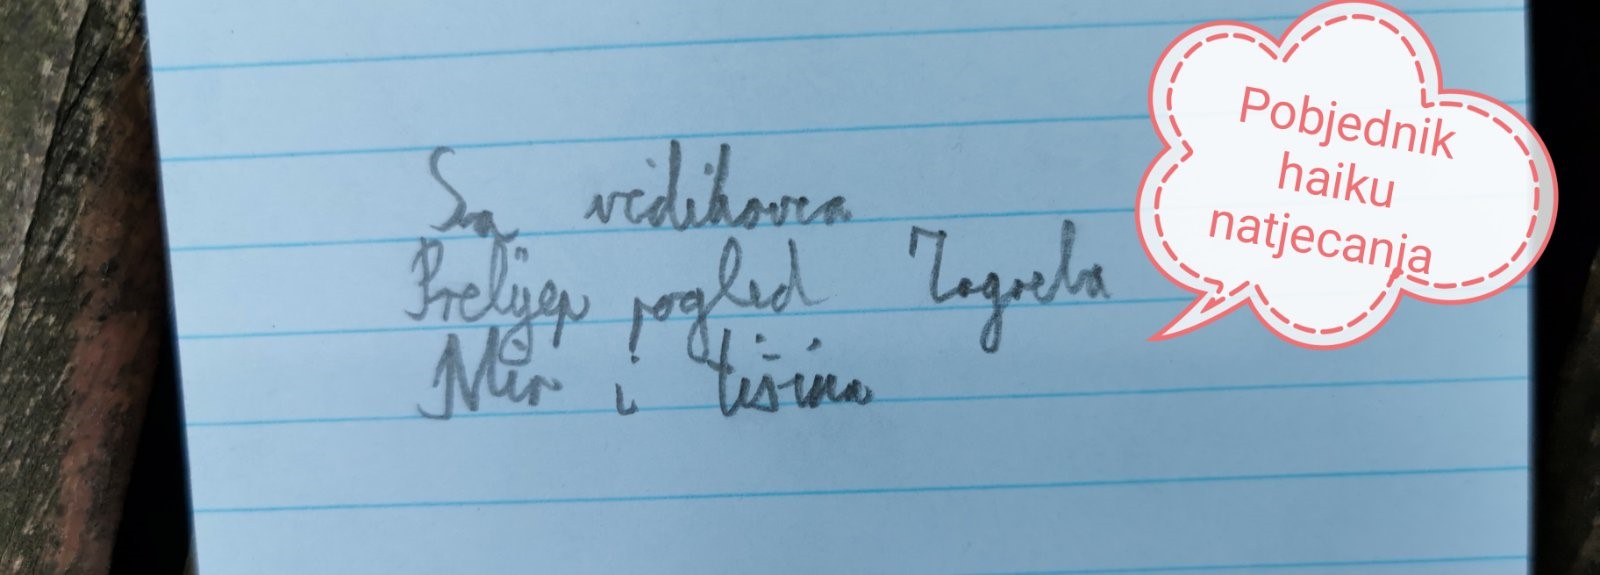 Sa vidikovca
Prelijep pogled Zagreba
Mir i tišina
Pobjednik
haiku
natjecanja